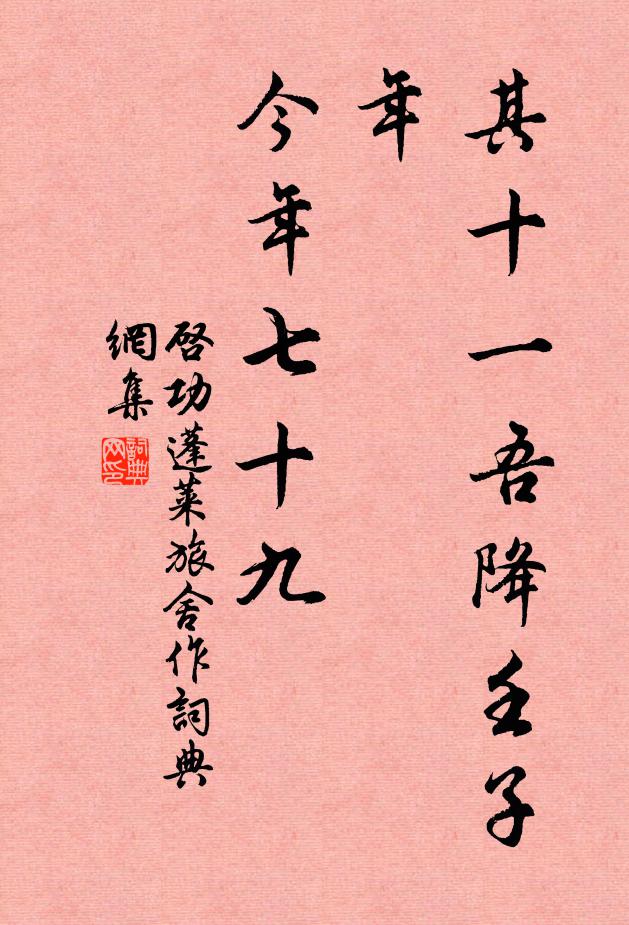 其十一吾降壬子
年
今年七十九
啓功蓬萊旅舍作詞典
網集
詞典网印